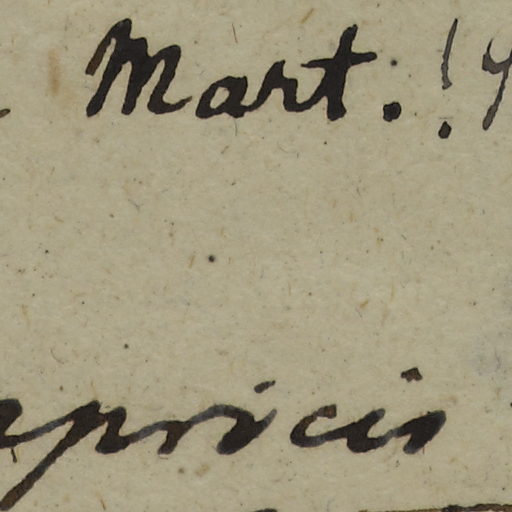 Mart. !
apricis